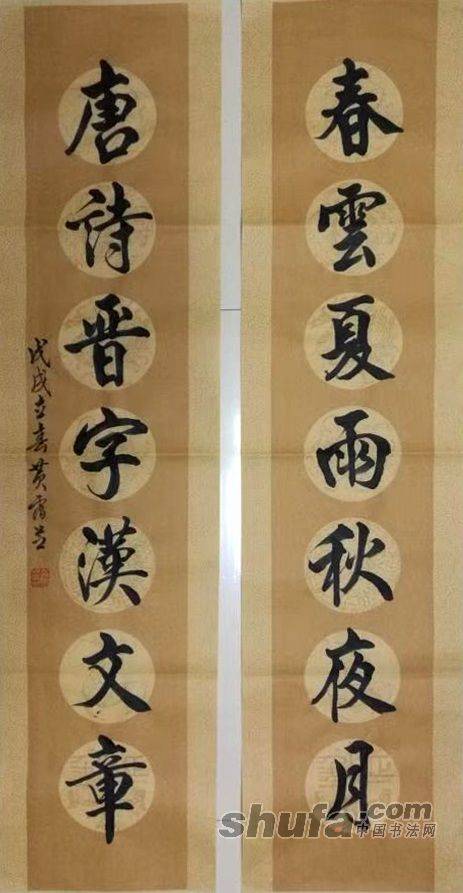 春雲夏雨秋夜月
唐詩晋字漢文章
戊戌立春黄霄書
shufa.com
中国书法网